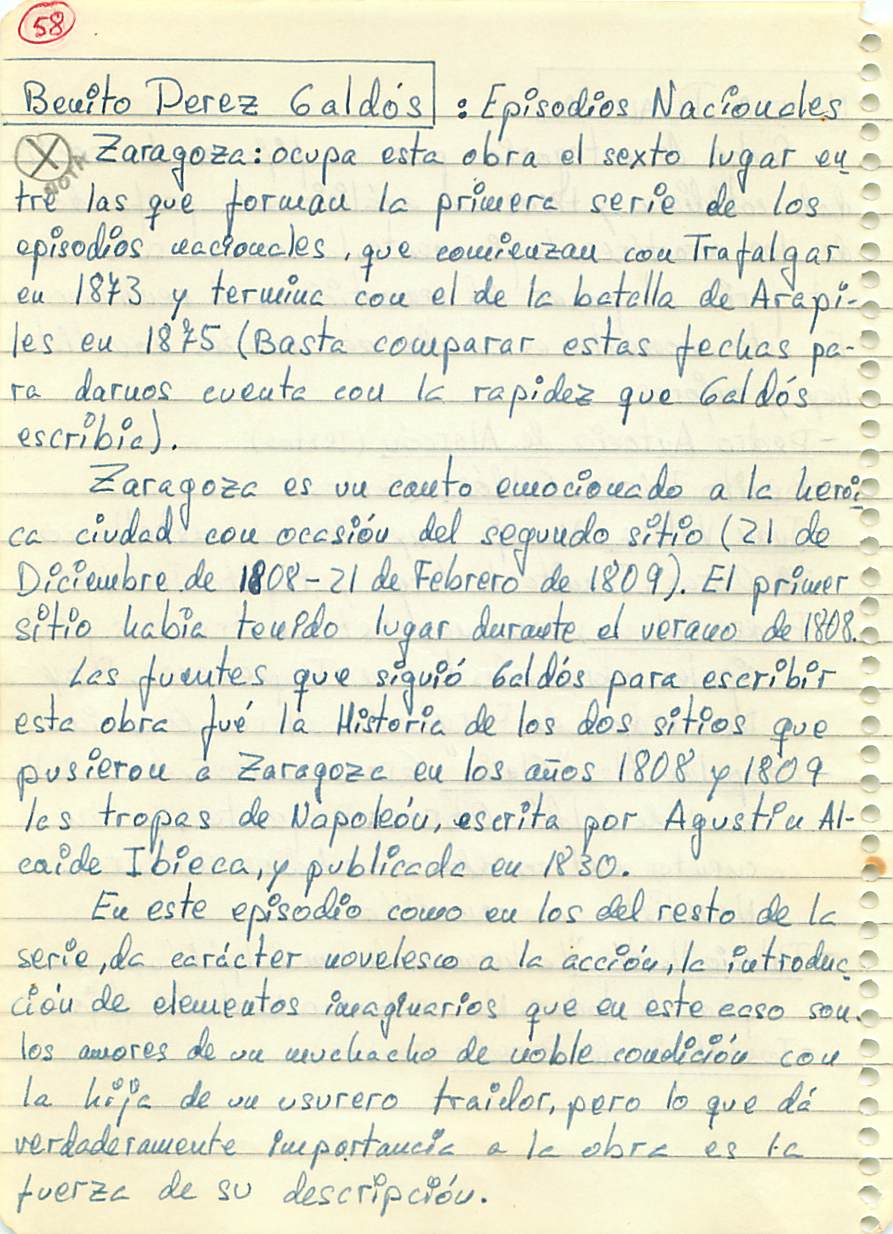 58
Benito Perez Galdós : Episodios Nacionales
X Zaragoza: ocupa esta obra el sexto lugar en
NOTA
tre las que forman la primera serie de los
episodios nacionales, que comienzan con Trafalgar
en 1873 y termina con el de la batalla de Arapi-
les en 1875 (Basta comparar estas fechas pa-
ra darnos cuenta con la rapidez que Galdós
escribia).
Zaragoza es un canto emocionado a la heroi
ca ciudad con ocasión del segundo sitio (21 de
Diciembre de 1808-21 de Febrero de 1809). El primer
sitio habia tenido lugar durante el verano de 1808.
Las fuentes que siguió Galdós para escribir
esta obra fué la Historia de los dos sitios que
pusieron a Zaragoza en los años 1808 y 1809
las tropas de Napoleón, escrita por Agustin Al-
caide Ibieca, y publicada en 1830.
En este episodio como en los del resto de la
serie, da carácter novelesco a la acción, la introduc
ción de elementos imaginarios que en este caso son.
los amores de un muchacho de noble condición con
la hija de un usurero traidor, pero lo que dá
verdaderamente importancia a la obra es la
fuerza de su descripción.